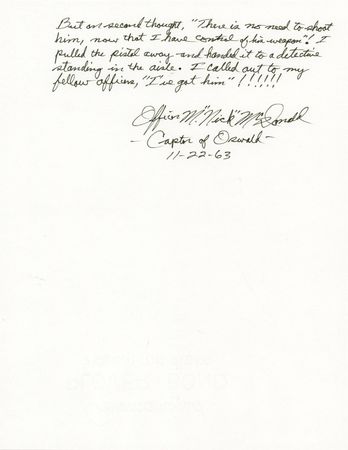 But on second thought, "There is no need to shoot
him, now that I have control of his weapon"! I
pulled the pistol away and handed it to a detective
standing in the aisle. I called out to my
fellow officers, "I've got him"!!!!!!
Officer M. "Nick" McDonald
- Captor of Oswald -
11-22-63